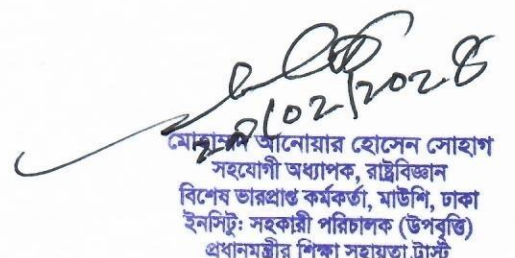 /02/202৪
মোহাম্মদ আনোয়ার হোসেন সোহাগ
সহযোগী অধ্যাপক, রাষ্ট্রবিজ্ঞান
বিশেষ ভারপ্রাপ্ত কর্মকর্তা, মাউশি, ঢাকা
ইনসিটু: সহকারী পরিচালক (উপবৃত্তি)
প্রধানমন্ত্রীর শিক্ষা সহায়তা ট্রাস্ট